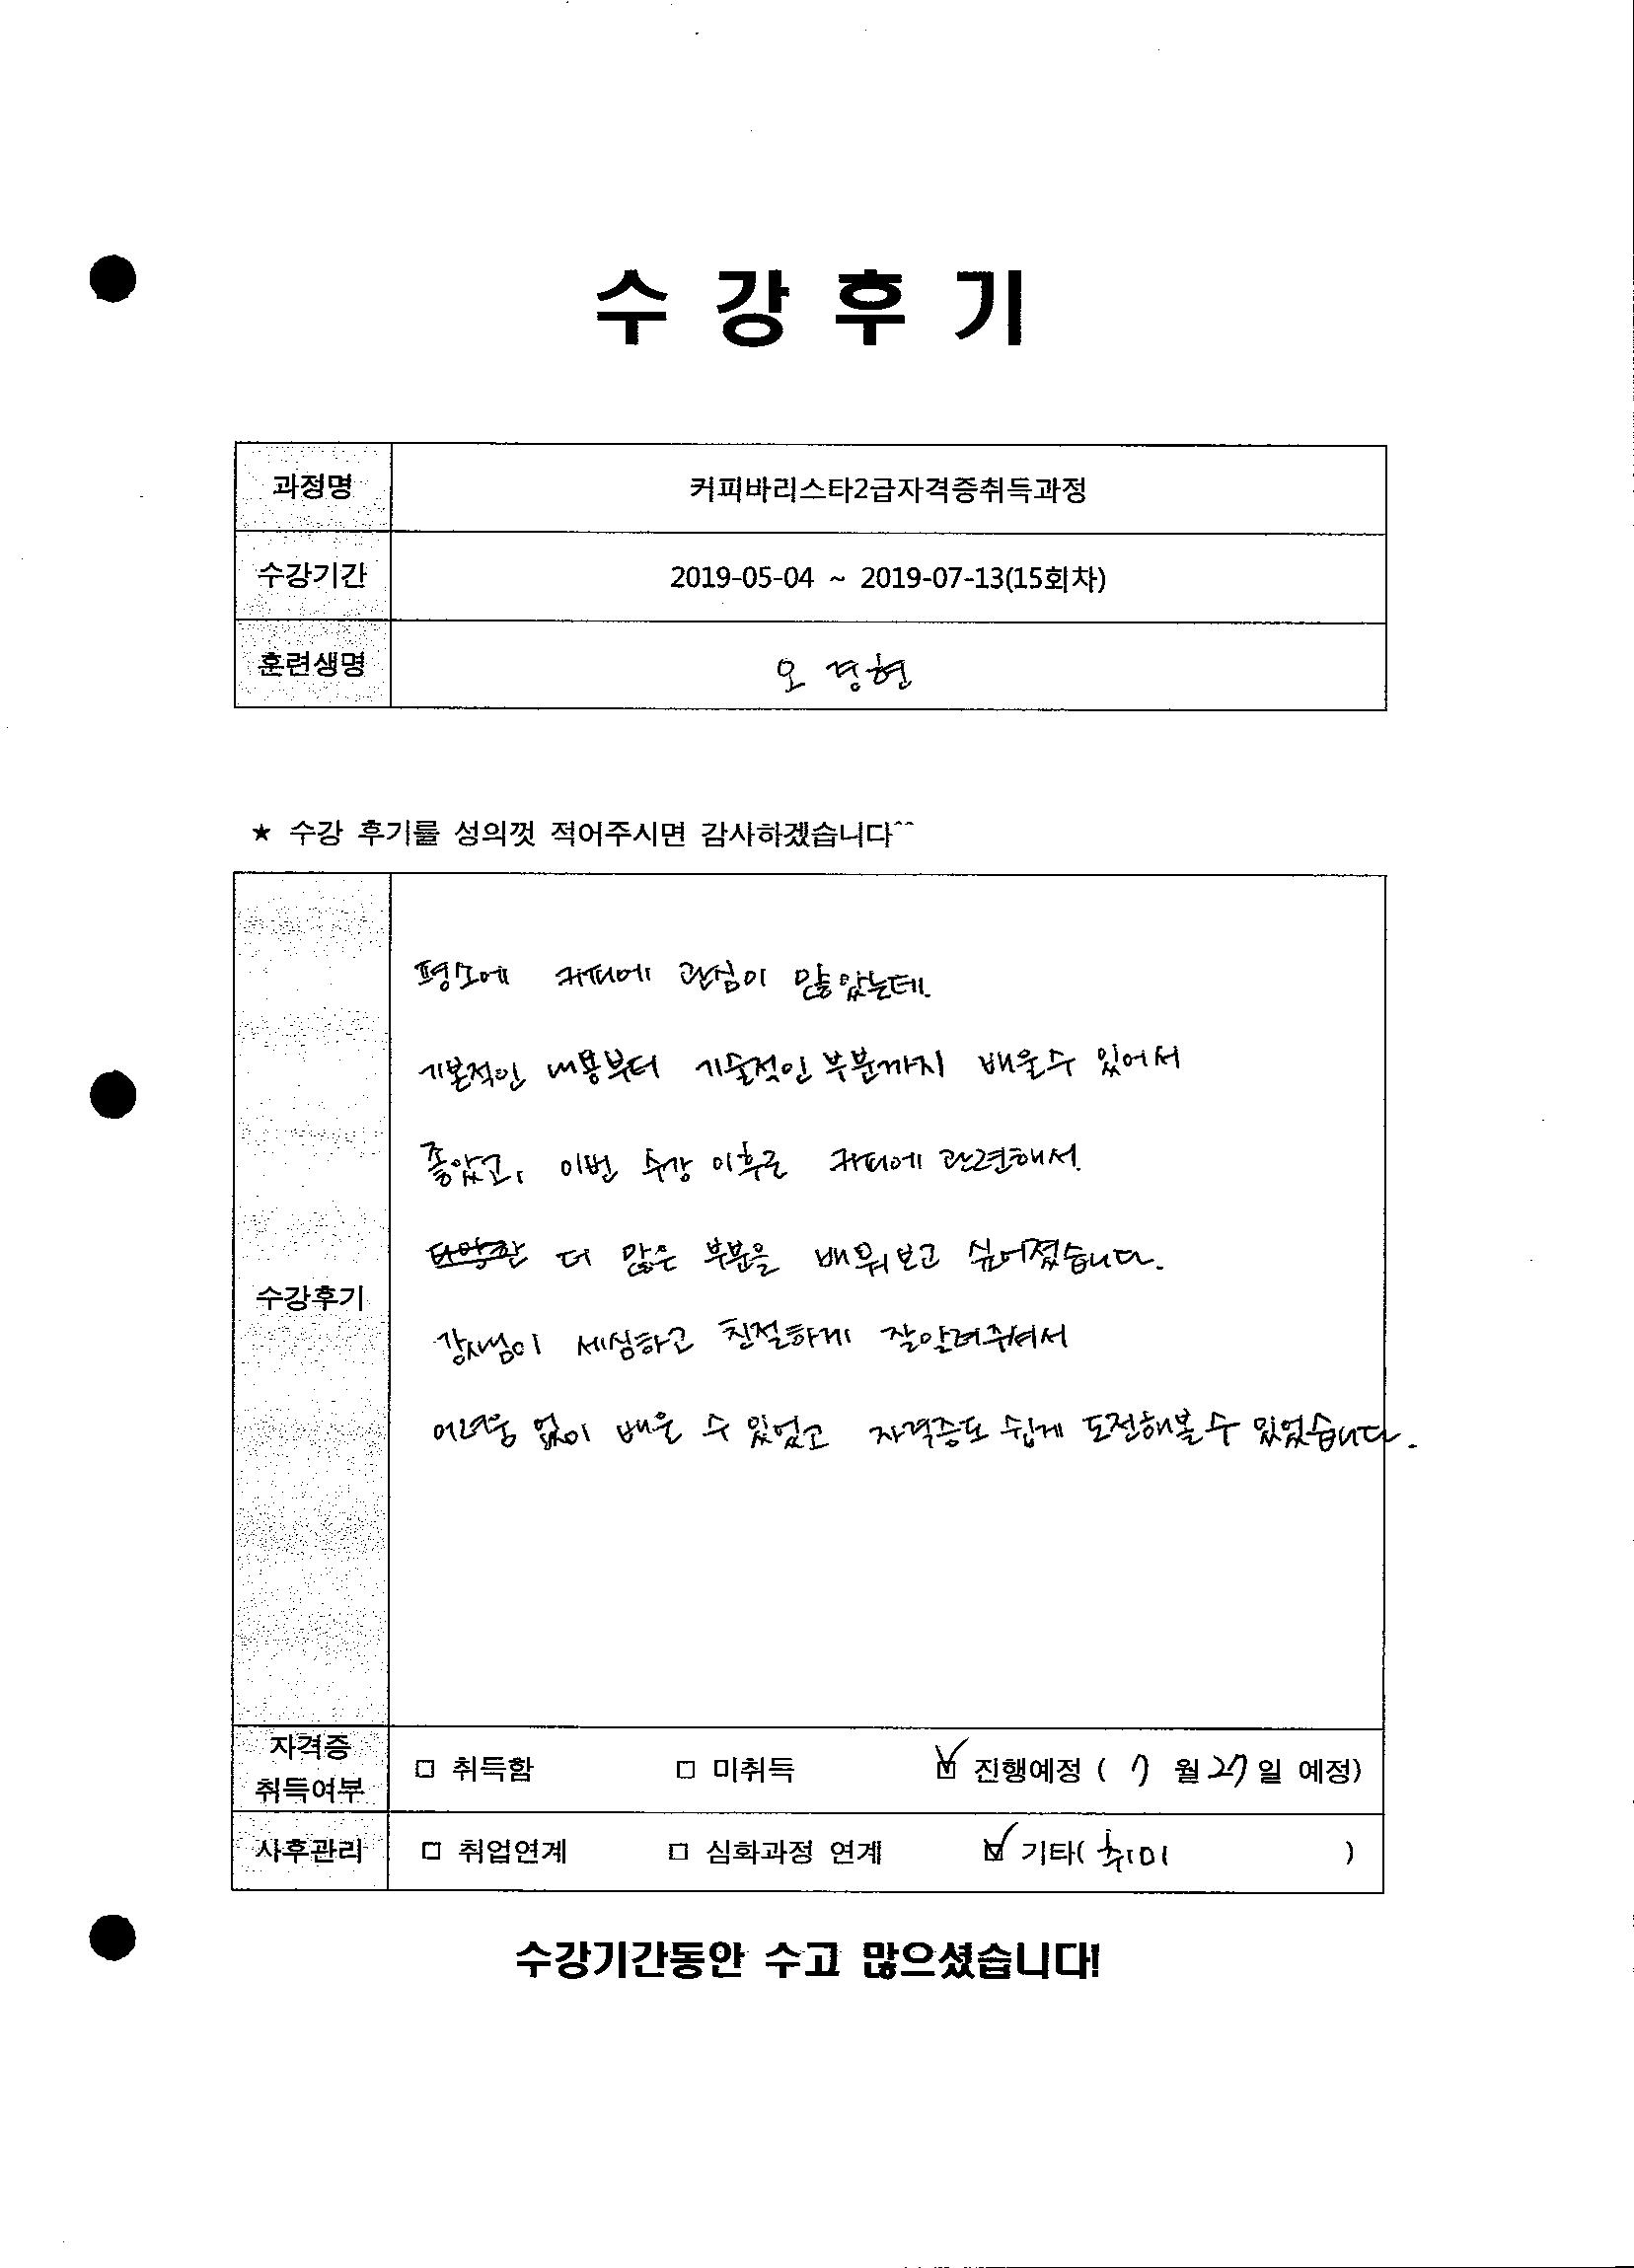 수강후기
과정명 커피바리스타2급자격증취득과정
수강기간 2019-05-04 ~ 2019-07-13(15회차)
훈련생명 오경현
★ 수강 후기를 성의껏 적어주시면 감사하겠습니다^^
평소에 커피에 관심이 많았는데.
기본적인 내용부터 기술적인 부분까지 배울수 있어서
좋았고, 이번 수강 이후로 커피에 관련해서
다양한 더 많은 부분을 배워보고 싶어졌습니다.
수강후기
강사님이 세심하고 친절하게 잘알려주셔서
어려움 없이 배울 수 있었고 자격증도 쉽게 도전해볼 수 있었습니다.
자격증
취득여부
□ 취득함 □ 미취득 ☑ 진행예정 ( 7 월 27 일 예정)
사후관리 □ 취업연계 □ 심화과정 연계 ☑ 기타( 취미 )
수강기간동안 수고 많으셨습니다!